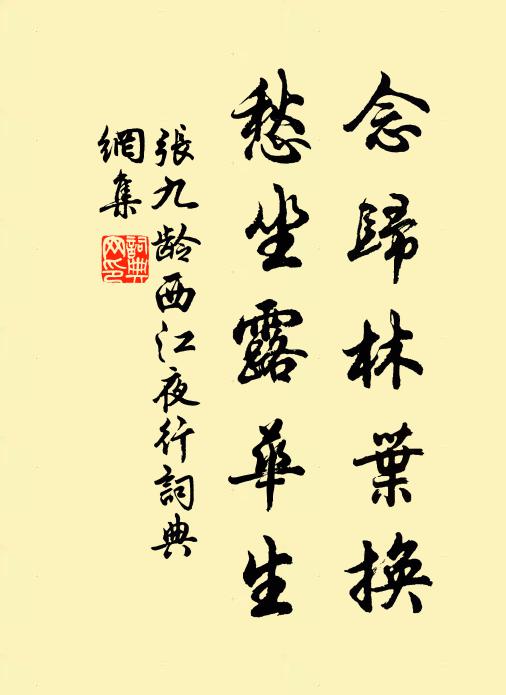 念歸林葉換
愁坐露華生
張九龄西江夜行詞典
網集
詞典
网印